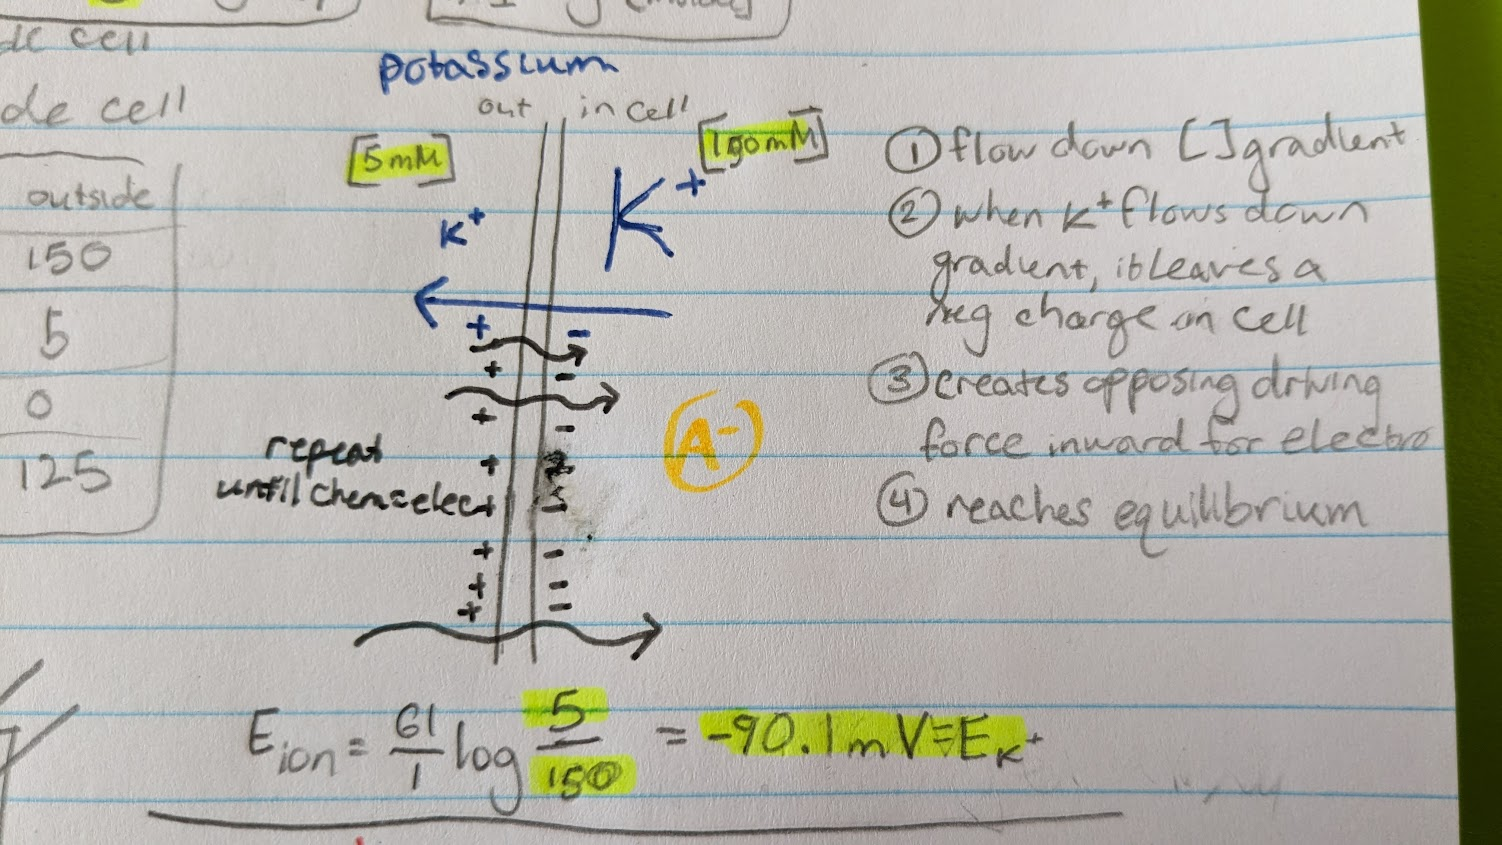 de cell
de cell
outside
150
5
0
125
potassium
out in cell
[5mM]
[150mM]
K+
K+
+ -
+ -
+ -
+
+ -
+ -
+ -
+ -
repeat
until chem=elec
A-
① flow down [ ] gradient
② when K+ flows down
gradient, it leaves a
neg charge in cell
③ creates opposing driving
force inward for electro
④ reaches equilibrium
Eion = 61/1 log 5/150 = -90.1mV ≡ EK+